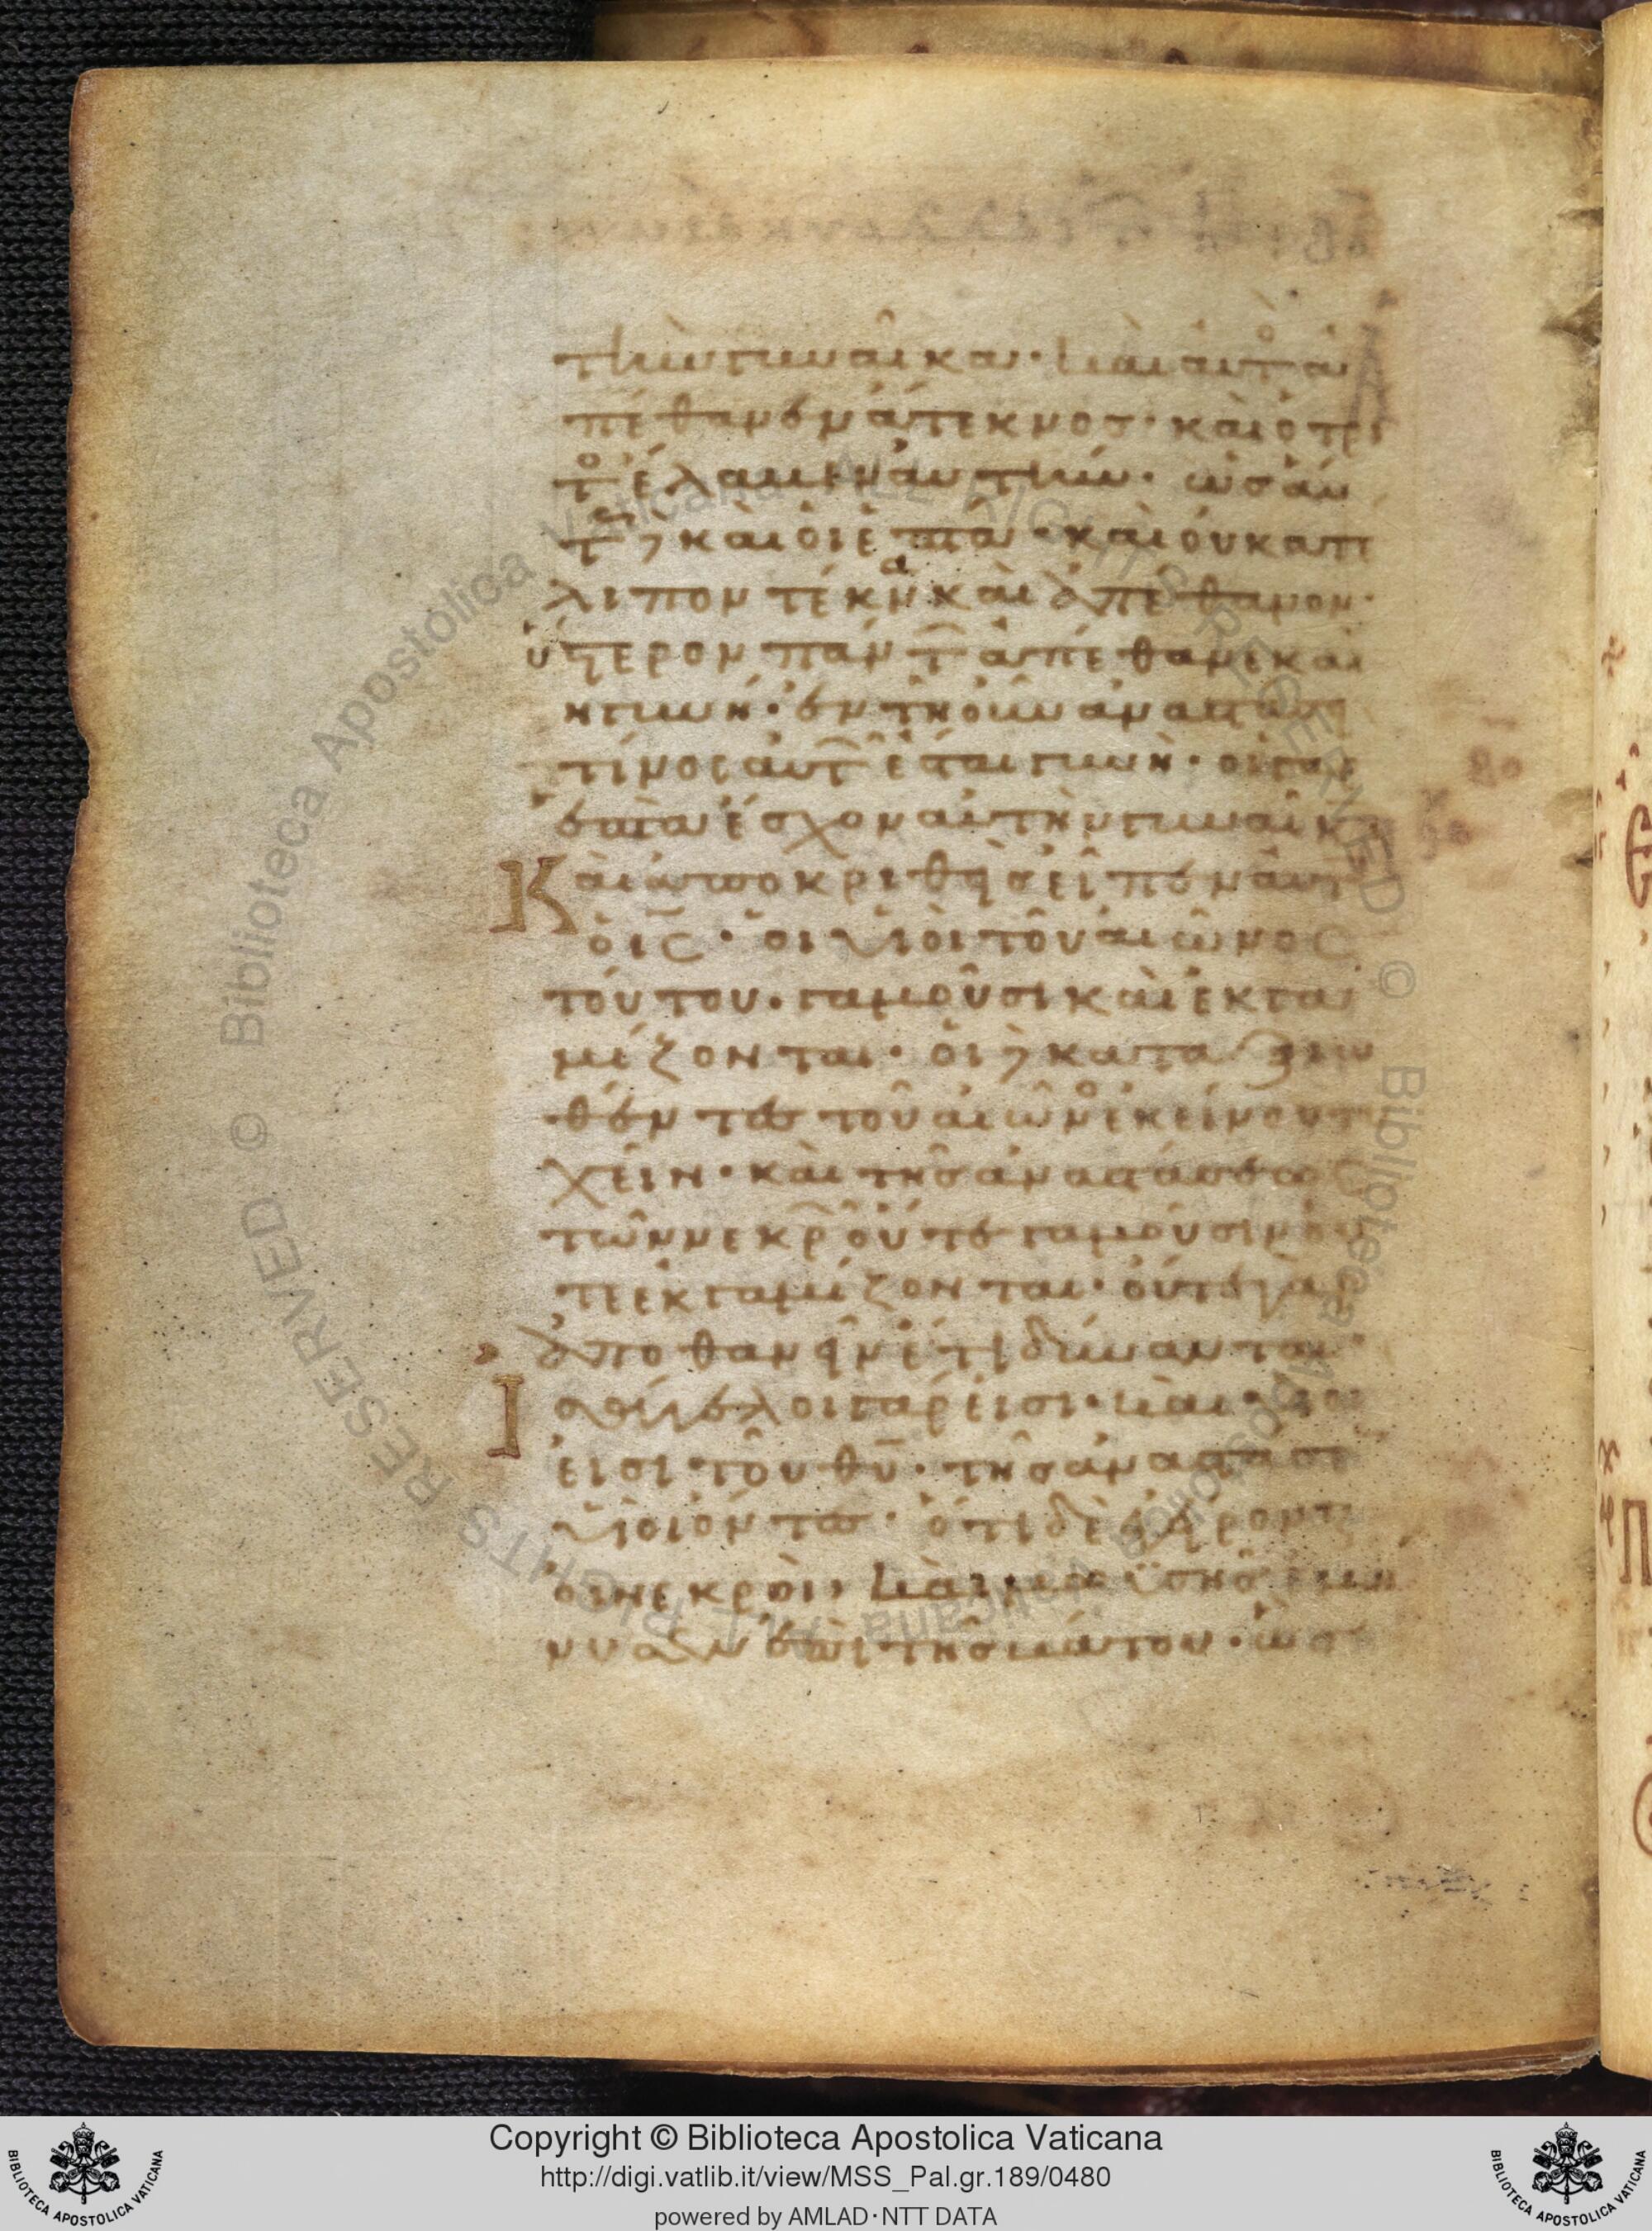 τὴν γυναῖκα· καὶ αὐτο ἀ
πέθανεν ἄτεκνος· καὶ ὁ τρί
το ἔλαβεν αὐτήν· ὡσαύ
τως δὲ καὶ οἱ ἑπτά· καὶ οὐ κατέ
λιπον τέκνα καὶ ἀπέθανον·
ὕστερον πάντ ἀπέθανε καὶ
ἡ γυνή· ἐν τῆ οὖν ἀναστάσ
τίνος αὐτ ἔσται γυνή· οἱ γὰρ
ἑπτὰ ἔσχον αὐτὴν γυναῖκα
Καὶ ἀποκριθεὶς εἶπεν αὐτ
ὁ ις· οἱ υἱοὶ τοῦ αἰῶνος
τούτου· γαμοῦσι καὶ ἐκγα
μίζονται· οἱ δὲ καταξιω
θέντες τοῦ αἰῶνο ἐκείνου τυ
χεῖν· καὶ τῆς ἀναστάσεως
τῶν νεκρ οὔτε γαμοῦσιν οὔ
τε ἐκγαμίζονται· οὔτε γὰρ
ἀποθανεῖν ἔτι δύνανται·
Ισάγγελοι γάρ εἰσι· καὶ υἱοί
εἰσι τοῦ θυ· τῆς ἀναστάσε
υἱοὶ ὄντες· ὅτι δὲ ἐγείροντ
οἱ νεκροὶ, καὶ μωϋσῆς ἐμή
νυσεν ἐπὶ τῆς βάτου· ὡς
Biblioteca Apostolica Vaticana ALL RIGHTS RESERVED ©
Copyright © Biblioteca Apostolica Vaticana
http://digi.vatlib.it/view/MSS_Pal.gr.189/0480
powered by AMLAD·NTT DATA
BIBLIOTECA APOSTOLICA VATICANA
BIBLIOTECA APOSTOLICA VATICANA